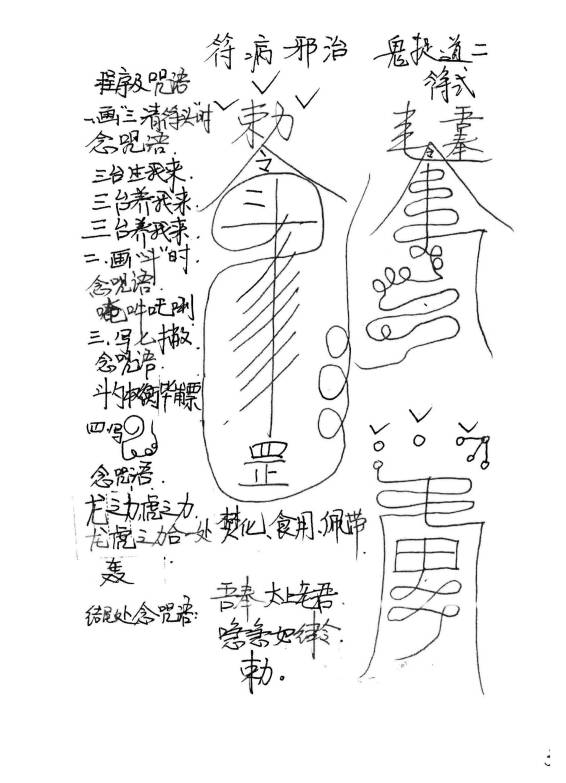 符病邪治
鬼捉道二
符式
程序及咒语
一、画“三清符头”时
念咒语.
三台生我来.
三台养我来.
三台养我来.
二.画“斗”时.
念咒语.
唵吽吒唎
三.写七撇
念咒语.
四写
念咒语.
龙之力虎之力.
龙虎之力合一处
轰
焚化、食用、佩带
结尾处念咒语:
吾奉太上老君.
急急如律令.
勅。
勅
令
二
罡
吾奉
令